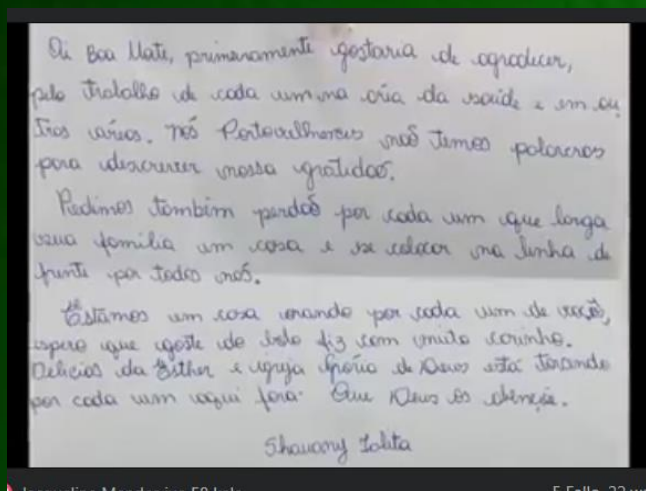 Oi Boa Noite, primeiramente gostaria de agradecer,
pelo trabalho de cada um na área da saúde e em ou
tros vários. nós Portovelhenses não temos palavras
para descrever nossa gratidão.
Pedimos também perdão por cada um que larga
sua família em casa e se colocar na linha de
frente por todos nós.
Estamos em casa orando por cada um de vocês,
espero que goste do bolo fiz com muito carinho.
Delicias da Esther e igreja de Deus está
por cada um aqui fora. Que Deus os abençõe.
Shauany